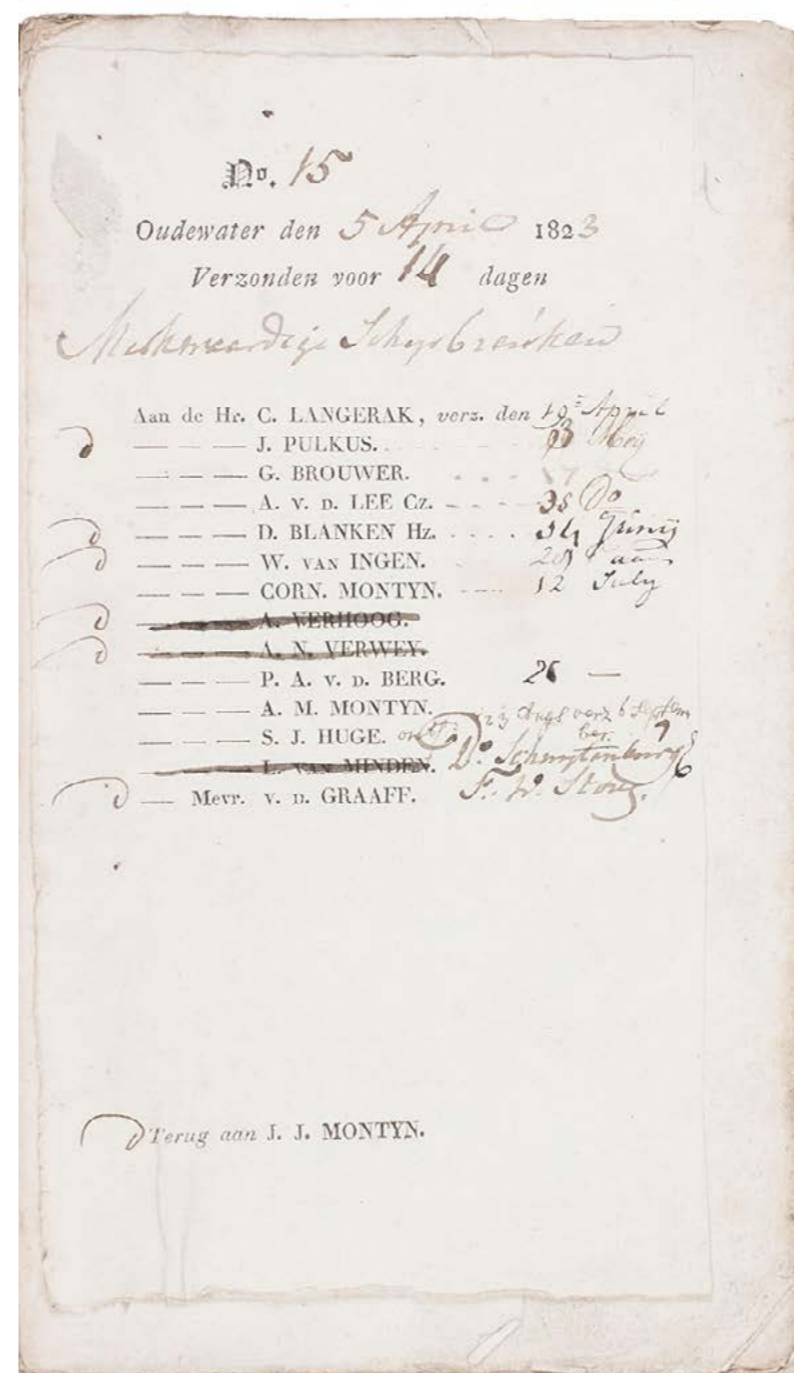 No. 15
Oudewater den 5 April 1823
Verzonden voor 14 dagen
Merkwaardige Schipbreuken
Aan de Hr. C. LANGERAK, verz. den 19 April
— — — J. PULKUS. Mey
— — — G. BROUWER.
— — — A. v. D. LEE Cz. Do
— — — D. BLANKEN Hz. 14 Junij
— — — W. VAN INGEN.
— — — CORN. MONTYN. 12 July
— — — A. VERHOOG.
— — — A. N. VERWEY.
— — — P. A. v. D. BERG. 26 —
— — — A. M. MONTYN.
— — — S. J. HUGE. verz 6 Septem
ber.
— — — L. VAN MINDEN.
— Mevr. v. D. GRAAFF. F. W.
Terug aan J. J. MONTYN.